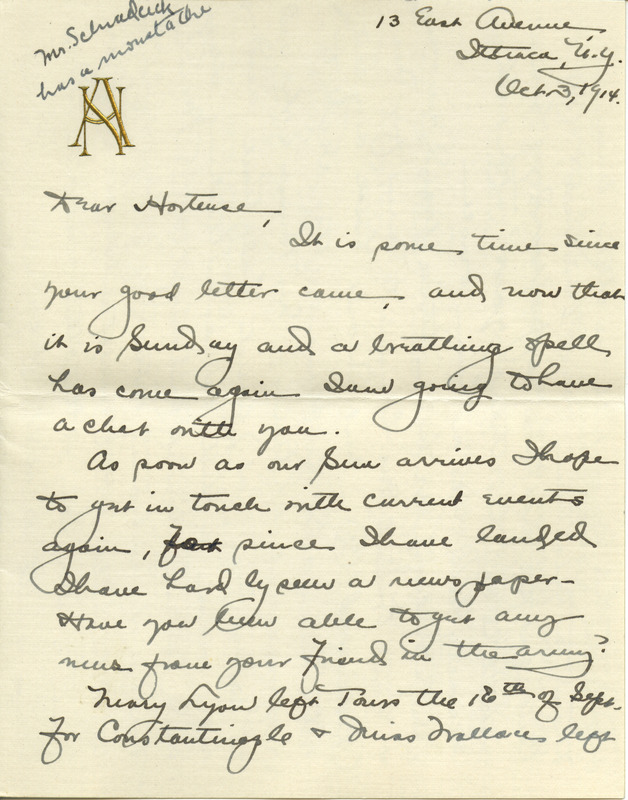 Mr. Schnadeick
has a moustache
13 East Avenue,
Ithaca, N.Y.
Oct. 3, 1914.
Dear Hortense,
It is some time since
your good letter came, and now that
it is Sunday and a breathing spell
has come again I am going to have
a chat with you.
As soon as our Sun arrives I hope
to get in touch with current events
again, for since I have landed
I have hardly seen a newspaper-
Have you been able to get any
news from your friend in the army?
Mary Lyon left Tours the 18th of Sept.
for Constantinople & Miss Wallace left